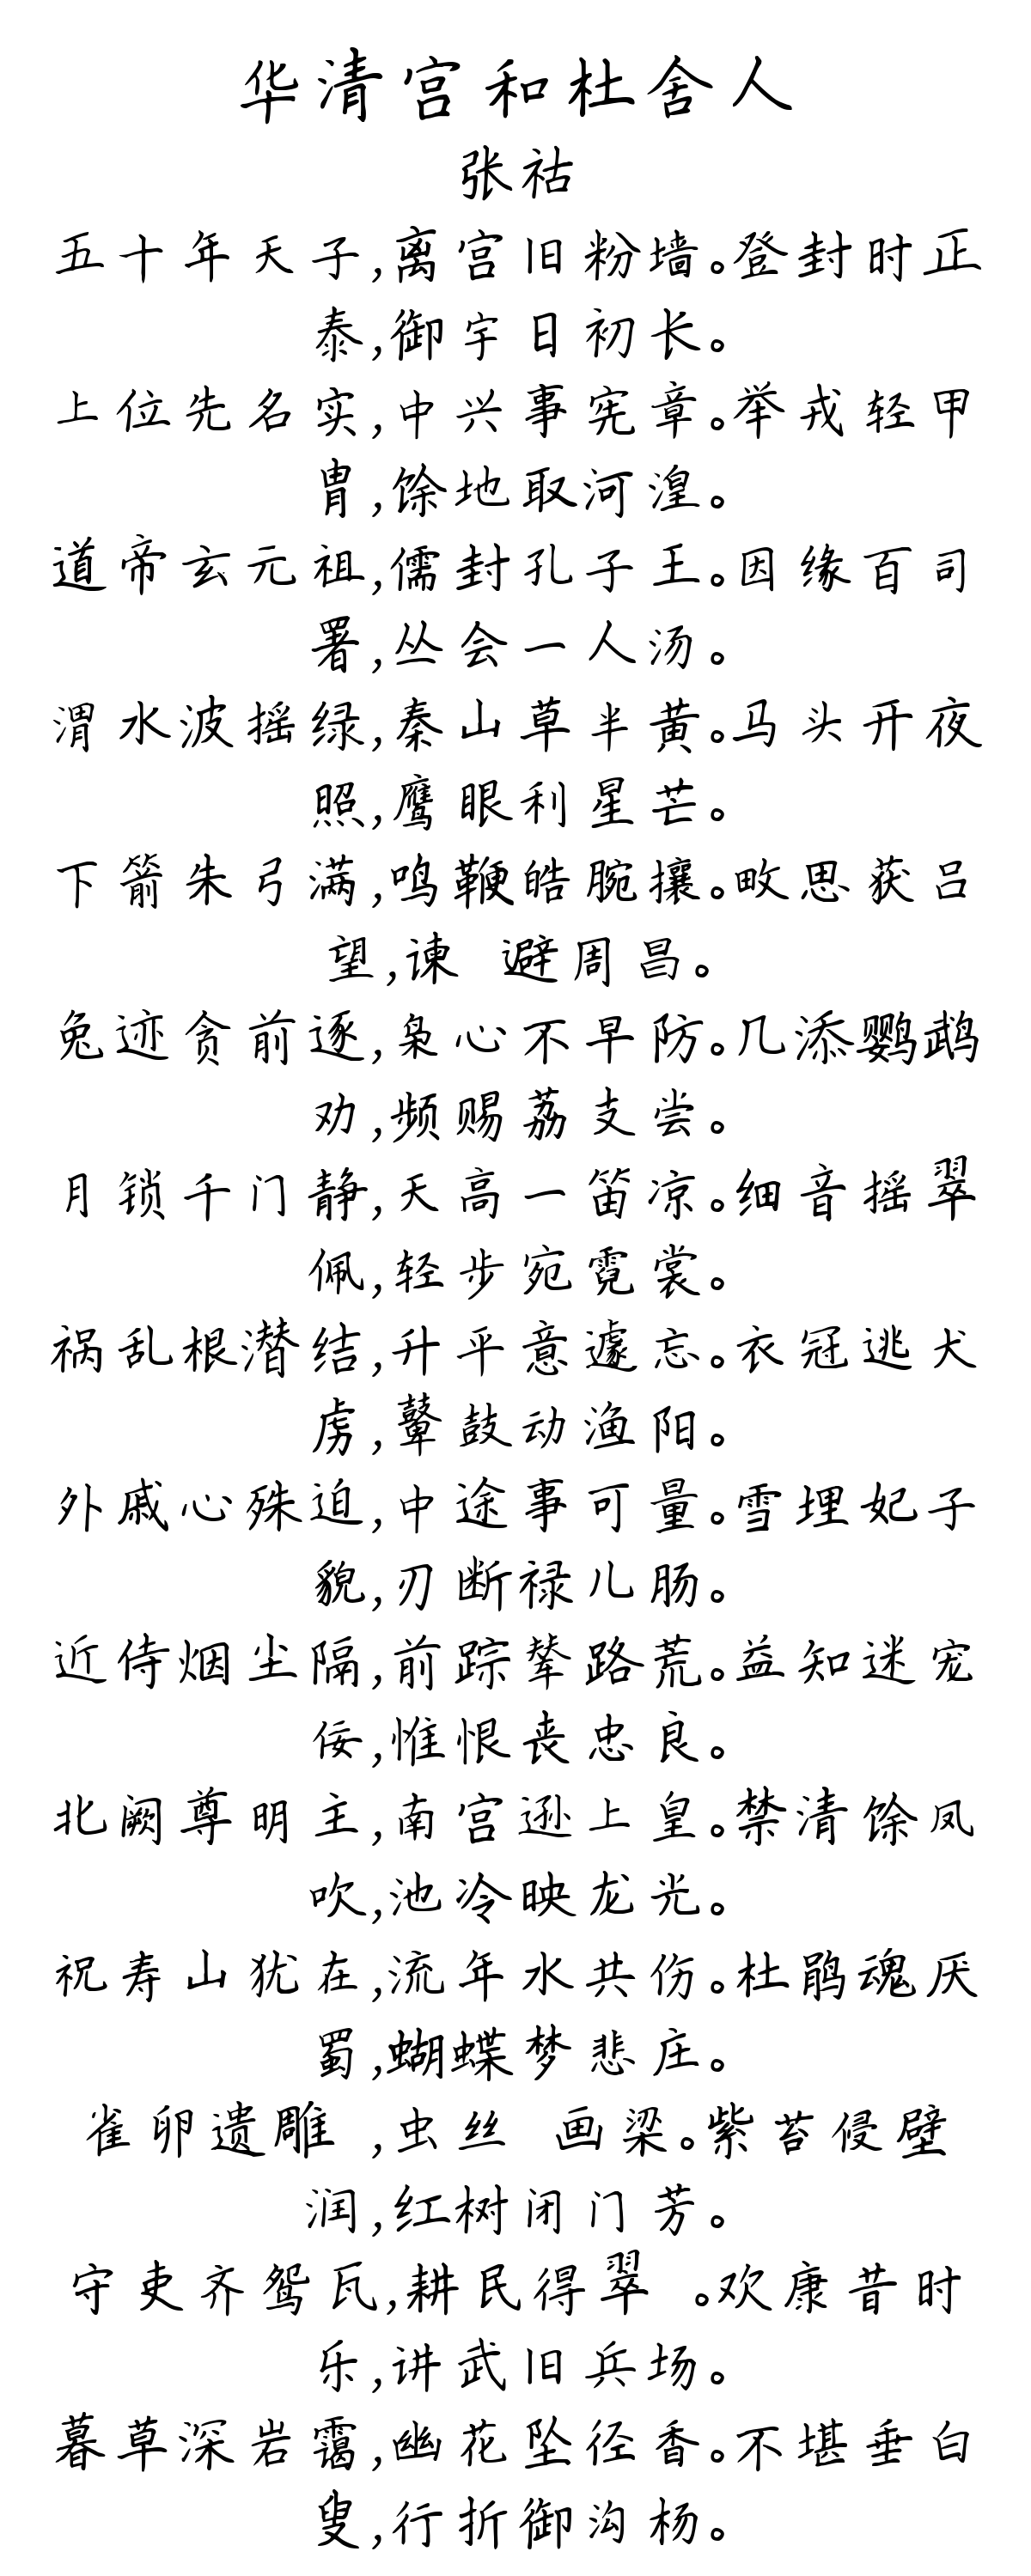 华清宫和杜舍人
张祜
五十年天子,离宫旧粉墙。登封时正
泰,御宇日初长。
上位先名实,中兴事宪章。举戎轻甲
胄,馀地取河湟。
道帝玄元祖,儒封孔子王。因缘百司
署,丛会一人汤。
渭水波摇绿,秦山草半黄。马头开夜
照,鹰眼利星芒。
下箭朱弓满,鸣鞭皓腕攘。畋思获吕
望,谏 避周昌。
兔迹贪前逐,枭心不早防。几添鹦鹉
劝,频赐荔支尝。
月锁千门静,天高一笛凉。细音摇翠
佩,轻步宛霓裳。
祸乱根潜结,升平意遽忘。衣冠逃犬
虏,鼙鼓动渔阳。
外戚心殊迫,中途事可量。雪埋妃子
貌,刃断禄儿肠。
近侍烟尘隔,前踪辇路荒。益知迷宠
佞,惟恨丧忠良。
北阙尊明主,南宫逊上皇。禁清馀凤
吹,池冷映龙光。
祝寿山犹在,流年水共伤。杜鹃魂厌
蜀,蝴蝶梦悲庄。
雀卵遗雕 ,虫丝 画梁。紫苔侵壁
润,红树闭门芳。
守吏齐鸳瓦,耕民得翠 。欢康昔时
乐,讲武旧兵场。
暮草深岩霭,幽花坠径香。不堪垂白
叟,行折御沟杨。